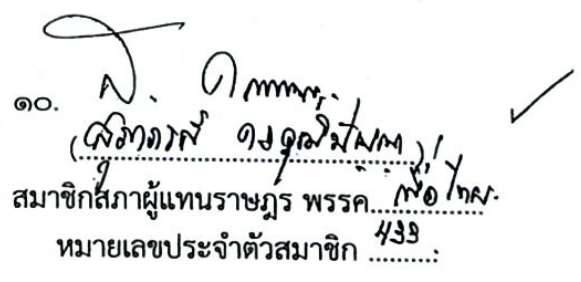 ๑๐.
(สุภาภรณ์ คงวุฒิปัญญา)
สมาชิกสภาผู้แทนราษฎร พรรค เพื่อไทย
หมายเลขประจำตัวสมาชิก 433